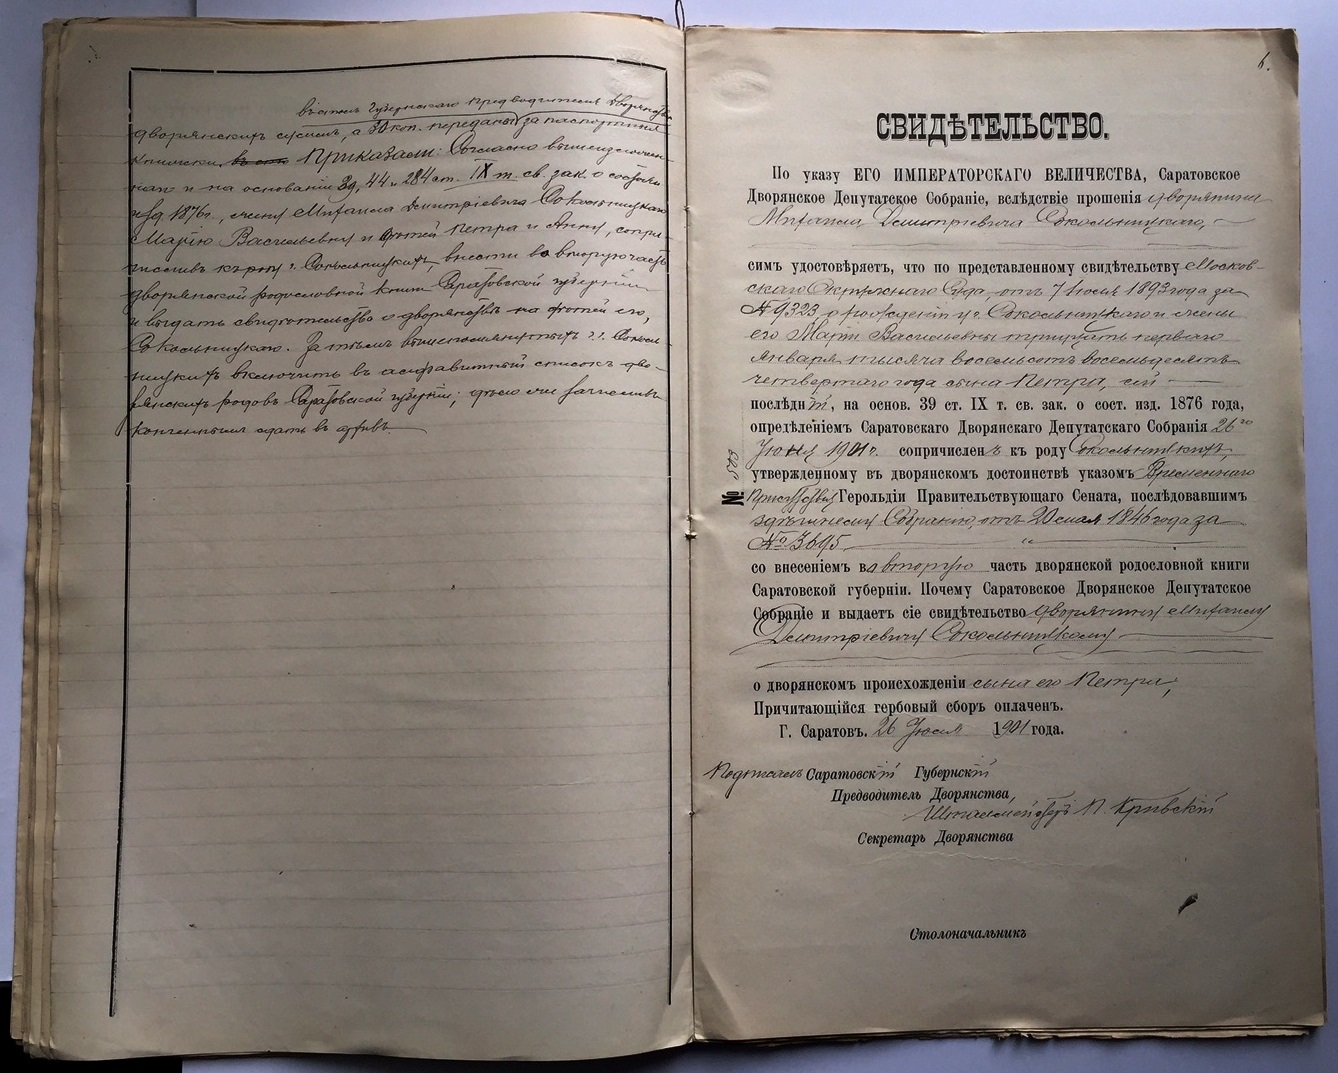 въ столъ Губернскаго Предводителя Дворянства
дворянскихъ суммъ, а 30 коп. переданы за паспортныя
книжки, Приказали: Согласно вышеизложен-
наго и на основаніи 39, 44 и 284 ст. IX т. св. зак. о состоян.
изд 1876 г., жену Михаила Дмитріевича Сокольницкаго
Марію Васильевну и дѣтей Петра и Анну, сопри-
числивъ къ роду г. Сокольницкихъ, внести во вторую часть
дворянской родословной книги Саратовской губерніи
и выдать свидѣтельства о дворянствѣ дѣтей его,
Сокольницкаго. Затѣмъ вышеупомянутыхъ г.г. Соколь-
ницкихъ включить въ алфавитный списокъ дво-
рянскихъ родовъ Саратовской губерніи; дѣло же зачисливъ
конченнымъ сдать въ архивъ.
6.
СВИДѢТЕЛЬСТВО.
По указу ЕГО ИМПЕРАТОРСКАГО ВЕЛИЧЕСТВА, Саратовское
Дворянское Депутатское Собраніе, вслѣдствіе прошенія дворянина
Михаила Дмитріевича Сокольницкаго,
симъ удостовѣряетъ, что по представленному свидѣтельству Москов-
скаго Окружнаго Суда, отъ 7 Іюля 1893 года за
№ 9323, о рожденіи у г. Сокольницкаго и жены
его Маріи Васильевны тридцать перваго
Января тысяча восемьсотъ восемьдесятъ
четвертаго года сына Петра, сей
послѣдній, на основ. 39 ст. IX т. св. зак. о сост. изд. 1876 года,
опредѣленіемъ Саратовскаго Дворянскаго Депутатскаго Собранія 26го
Іюня 1901 г. сопричисленъ къ роду Сокольницкихъ,
утвержденному въ дворянскомъ достоинствѣ указомъ Временнаго
Присутствія Герольдіи Правительствующаго Сената, послѣдовавшимъ
здѣшнему Собранію, отъ 20 мая 1846 года за
№ 3695
со внесеніемъ во вторую часть дворянской родословной книги
Саратовской губерніи. Почему Саратовское Дворянское Депутатское
Собраніе и выдаетъ сіе свидѣтельство дворянину Михаилу
Дмитріевичу Сокольницкому
о дворянскомъ происхожденіи сына его Петра,
Причитающійся гербовый сборъ оплаченъ.
Г. Саратовъ. 26 Іюля 1901 года.
Подписалъ Саратовскій Губернскій
Предводитель Дворянства,
Шталмейстеръ П. Кривскій
Секретарь Дворянства
Столоначальникъ
№